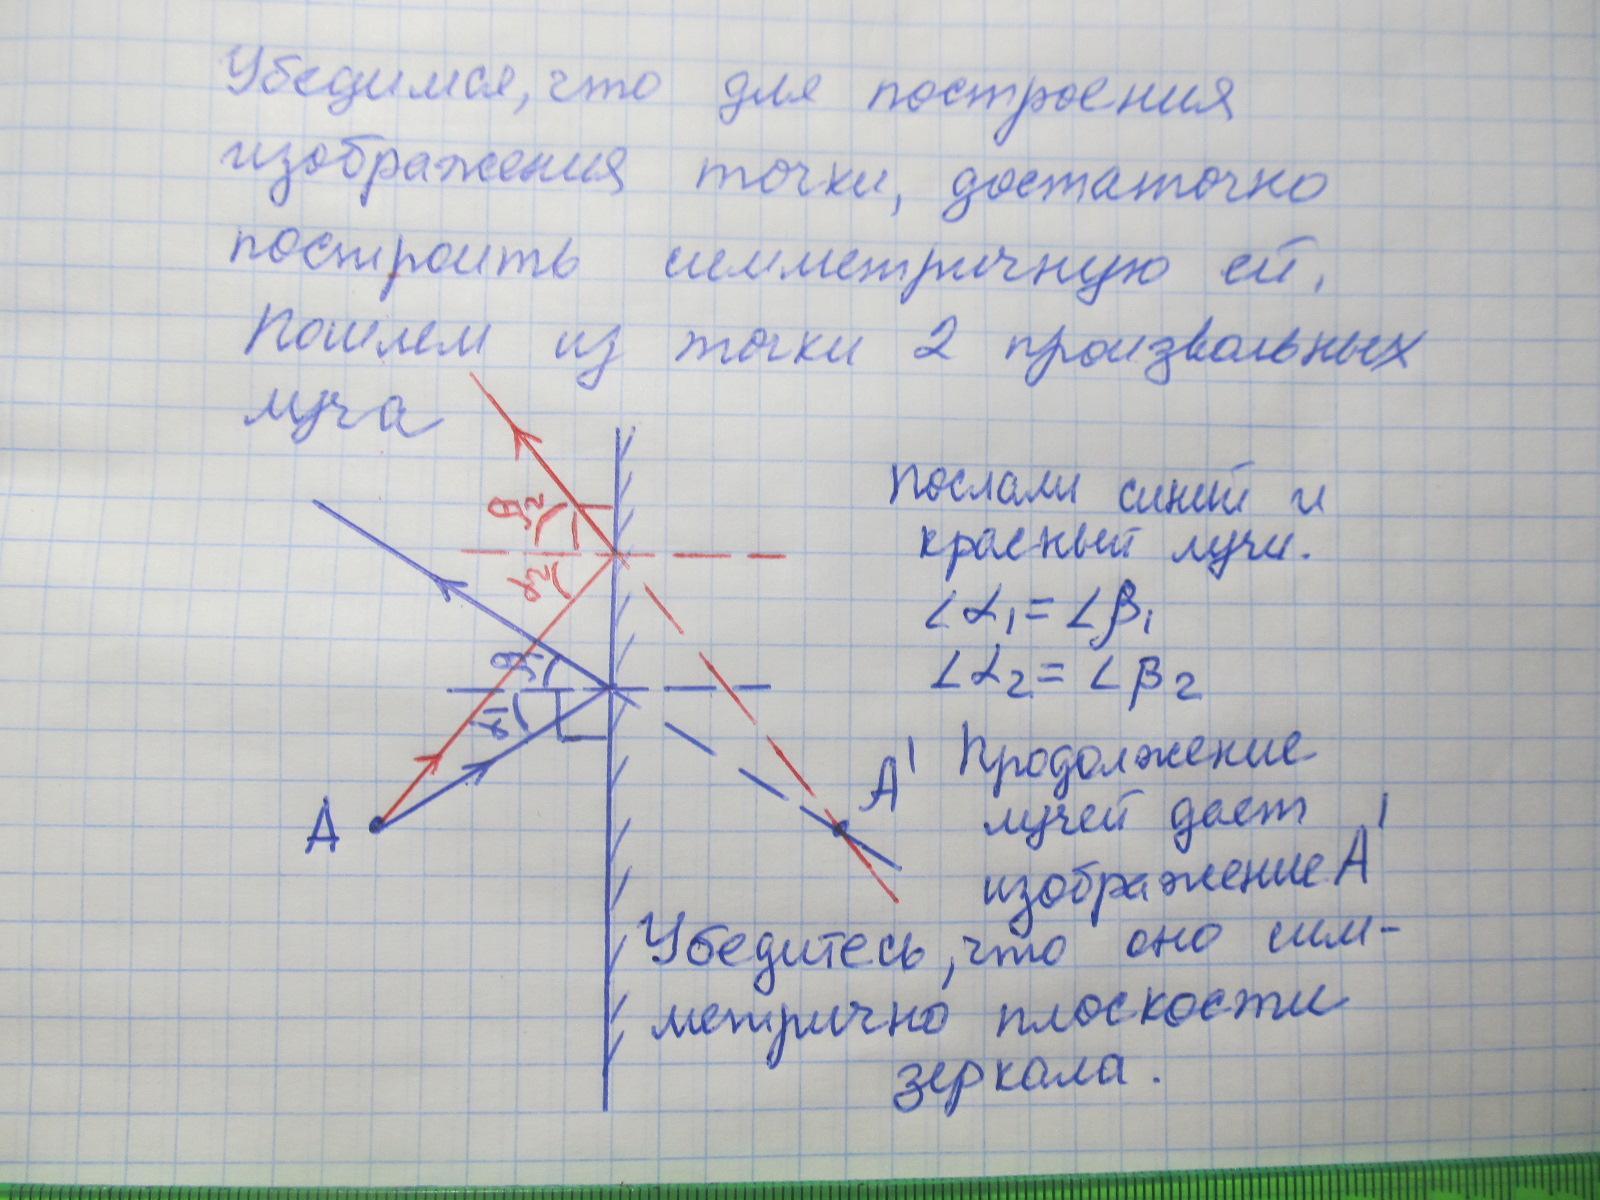 Убедимся, что для построения
изображения точки, достаточно
построить симметричную ей.
Пошлем из точки 2 произвольных
луча
β2
α2
β1
α1
A
A'
Послали синий и
красный лучи.
∠α1 = ∠β1
∠α2 = ∠β2
Продолжение
лучей дает
изображение A'
Убедитесь, что оно сим-
метрично плоскости
зеркала.